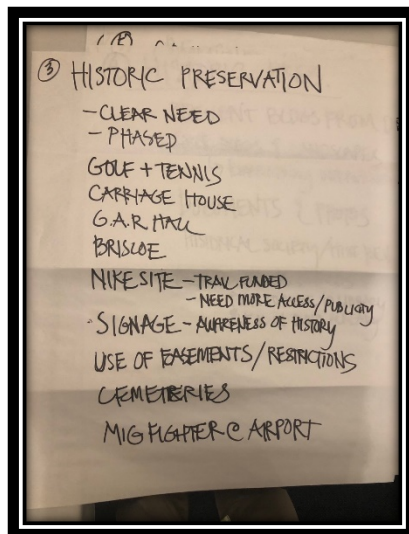 ③ HISTORIC PRESERVATION
- CLEAR NEED
- PHASED
GOLF + TENNIS
CARRIAGE HOUSE
G.A.R HALL
BRISCOE
NIKE SITE - TRAIL FUNDED
- NEED MORE ACCESS/PUBLICITY
- SIGNAGE - AWARENESS OF HISTORY
USE OF EASEMENTS/RESTRICTIONS
CEMETERIES
MIG FIGHTER @ AIRPORT